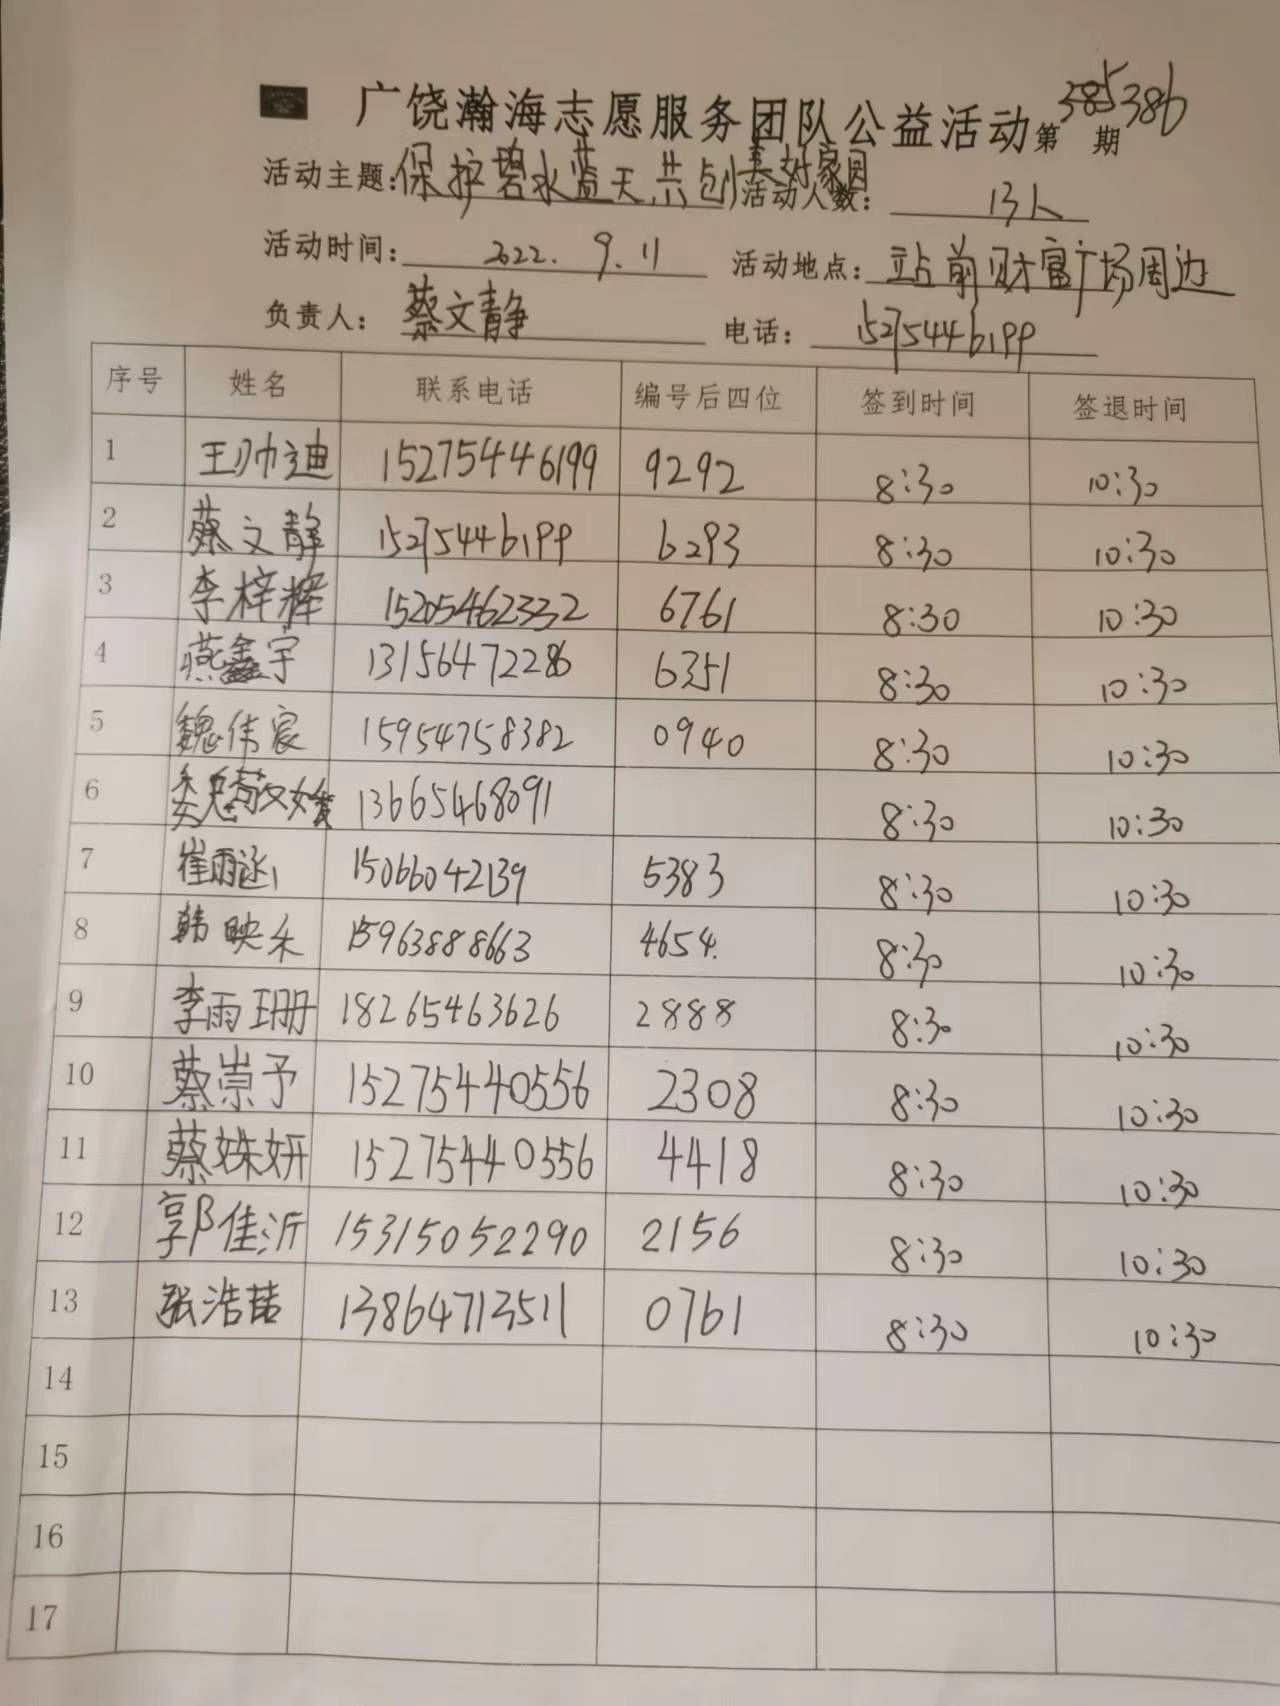 广饶瀚海志愿服务团队公益活动第385 386期
活动主题:保护碧水蓝天,共创美好家园 活动人数: 13人
活动时间: 2022. 9. 11 活动地点: 站前财富广场周边
负责人: 蔡文静 电话: 15275446199
序号 姓名 联系电话 编号后四位 签到时间 签退时间
1 王帅迪 15275446199 9292 8:30 10:30
2 蔡文静 15275446199 6293 8:30 10:30
3 李梓辉 15205462332 6761 8:30 10:30
4 燕鑫宇 13156472286 6351 8:30 10:30
5 魏伟宸 15954758382 0940 8:30 10:30
6 魏敬媛 13665468091 8:30 10:30
7 崔雨涵 15066042139 5383 8:30 10:30
8 韩映禾 15963888663 4654. 8:30 10:30
9 李雨珊 18265463626 2888 8:30 10:30
10 蔡崇予 15275440556 2308 8:30 10:30
11 蔡姝妍 15275440556 4418 8:30 10:30
12 郭佳沂 15315052290 2156 8:30 10:30
13 张浩喆 13864713511 0761 8:30 10:30
14
15
16
17